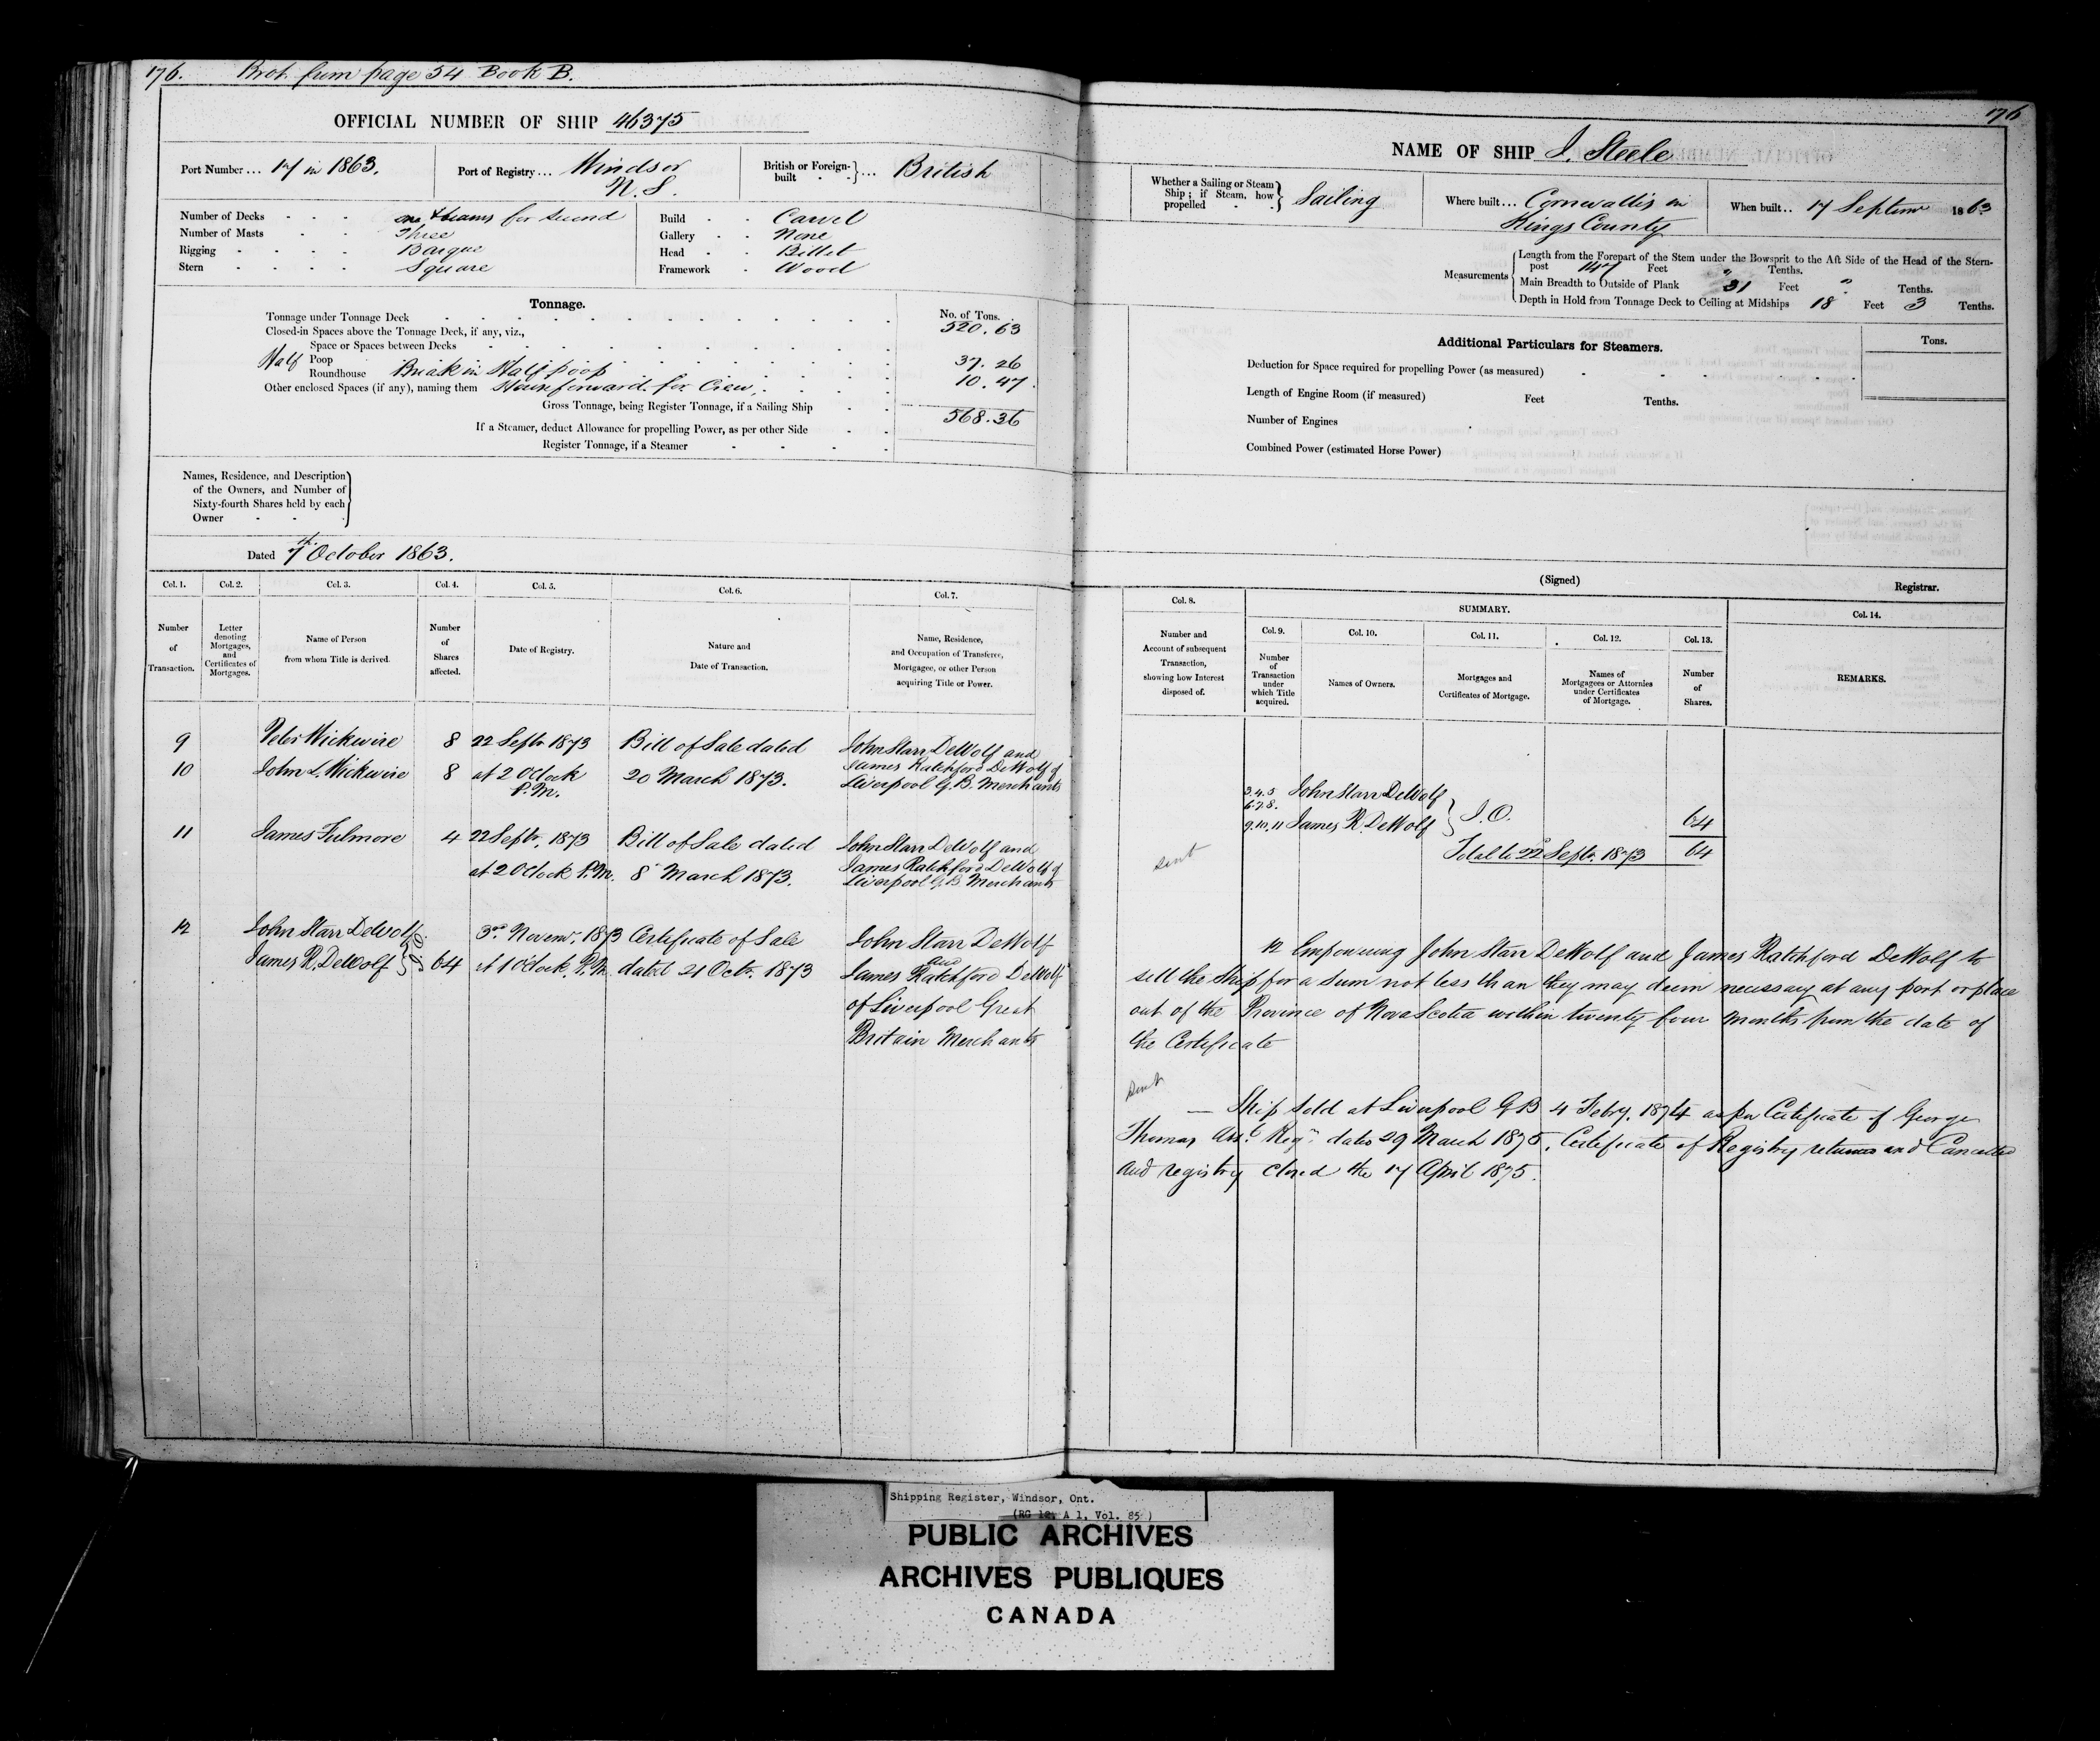 176. Brot. from page 54 Book B.
OFFICIAL NUMBER OF SHIP 46375
Port Number ... 17 in 1863.
Port of Registry ... Windsor
N.S.
British or Foreign-built ... British
Number of Decks one & beams for second
Number of Masts Three
Rigging Barque
Stern Square
Build Carvel
Gallery None
Head Billet
Framework Wood
Tonnage.
No. of Tons.
Tonnage under Tonnage Deck 520.63
Closed-in Spaces above the Tonnage Deck, if any, viz.,
Space or Spaces between Decks
Half Poop 37.26
Roundhouse Break in Half poop
Other enclosed Spaces (if any), naming them House forward for Crew 10.47
Gross Tonnage, being Register Tonnage, if a Sailing Ship 568.36
If a Steamer, deduct Allowance for propelling Power, as per other Side
Register Tonnage, if a Steamer
Names, Residence, and Description
of the Owners, and Number of
Sixty-fourth Shares held by each
Owner
Dated 7th October 1863.
Col. 1. Col. 2. Col. 3. Col. 4. Col. 5. Col. 6. Col. 7.
Number of Transaction.
Letter denoting Mortgages, and Certificates of Mortgages.
Name of Person from whom Title is derived.
Number of Shares affected.
Date of Registry.
Nature and Date of Transaction.
Name, Residence, and Occupation of Transferee, Mortgagee, or other Person acquiring Title or Power.
9 Peter Wickwire 8 22 Septr 1873 Bill of Sale dated John Starr DeWolf and
10 John L. Wickwire 8 at 2 Oclock 20 March 1873. James Ratchford DeWolf of
P.M. Liverpool G.B. Merchants
11 James Fulmore 4 22 Septr, 1873 Bill of Sale dated John Starr DeWolf and
at 2 Oclock P.M. 8 March 1873. James Ratchford DeWolf of
Liverpool G.B. Merchants
12 John Starr DeWolf 3rd Novemr, 1873 Certificate of Sale John Starr DeWolf
James R. DeWolf } J.O. 64 at 1 Oclock. P.M. dated 21 Octr. 1873 and
James Ratchford DeWolf
of Liverpool Great
Britain Merchants
176
NAME OF SHIP J. Steele
Whether a Sailing or Steam Ship; if Steam, how propelled Sailing
Where built ... Cornwallis in
Kings County
When built .. 17 Septemr 1863
Measurements
Length from the Forepart of the Stem under the Bowsprit to the Aft Side of the Head of the Stern-
post 147 Feet " Tenths.
Main Breadth to Outside of Plank 31 Feet " Tenths.
Depth in Hold from Tonnage Deck to Ceiling at Midships 18 Feet 3 Tenths.
Additional Particulars for Steamers.
Tons.
Deduction for Space required for propelling Power (as measured)
Length of Engine Room (if measured) Feet Tenths.
Number of Engines
Combined Power (estimated Horse Power)
(Signed) Registrar.
Col. 8. SUMMARY. Col. 14.
Col. 9. Col. 10. Col. 11. Col. 12. Col. 13.
Number and Account of subsequent Transaction, showing how Interest disposed of.
Number of Transaction under which Title acquired.
Names of Owners.
Mortgages and Certificates of Mortgage.
Names of Mortgagees or Attornies under Certificates of Mortgage.
Number of Shares.
REMARKS.
3.4.5 John Starr DeWolf
6.7.8.
9.10.11 James R. DeWolf } J.O. 64
sent
Total to 22d Septr. 1873 64
12 Empowering John Starr DeWolf and James Ratchford DeWolf to
sell the Ship for a sum not less than they may deem necessary at any port or place
out of the Province of Nova Scotia within twenty four months from the date of
the Certificate
sent
— Ship sold at Liverpool G B 4 Febry. 1874 as per Certificate of George
Thomas Asst. Regr. dated 29 March 1875. Certificate of Registry returned and Cancelled
and registry closed the 17 April 1875.
Shipping Register, Windsor, Ont.
(RG 12, A 1, Vol. 85)
PUBLIC ARCHIVES
ARCHIVES PUBLIQUES
CANADA